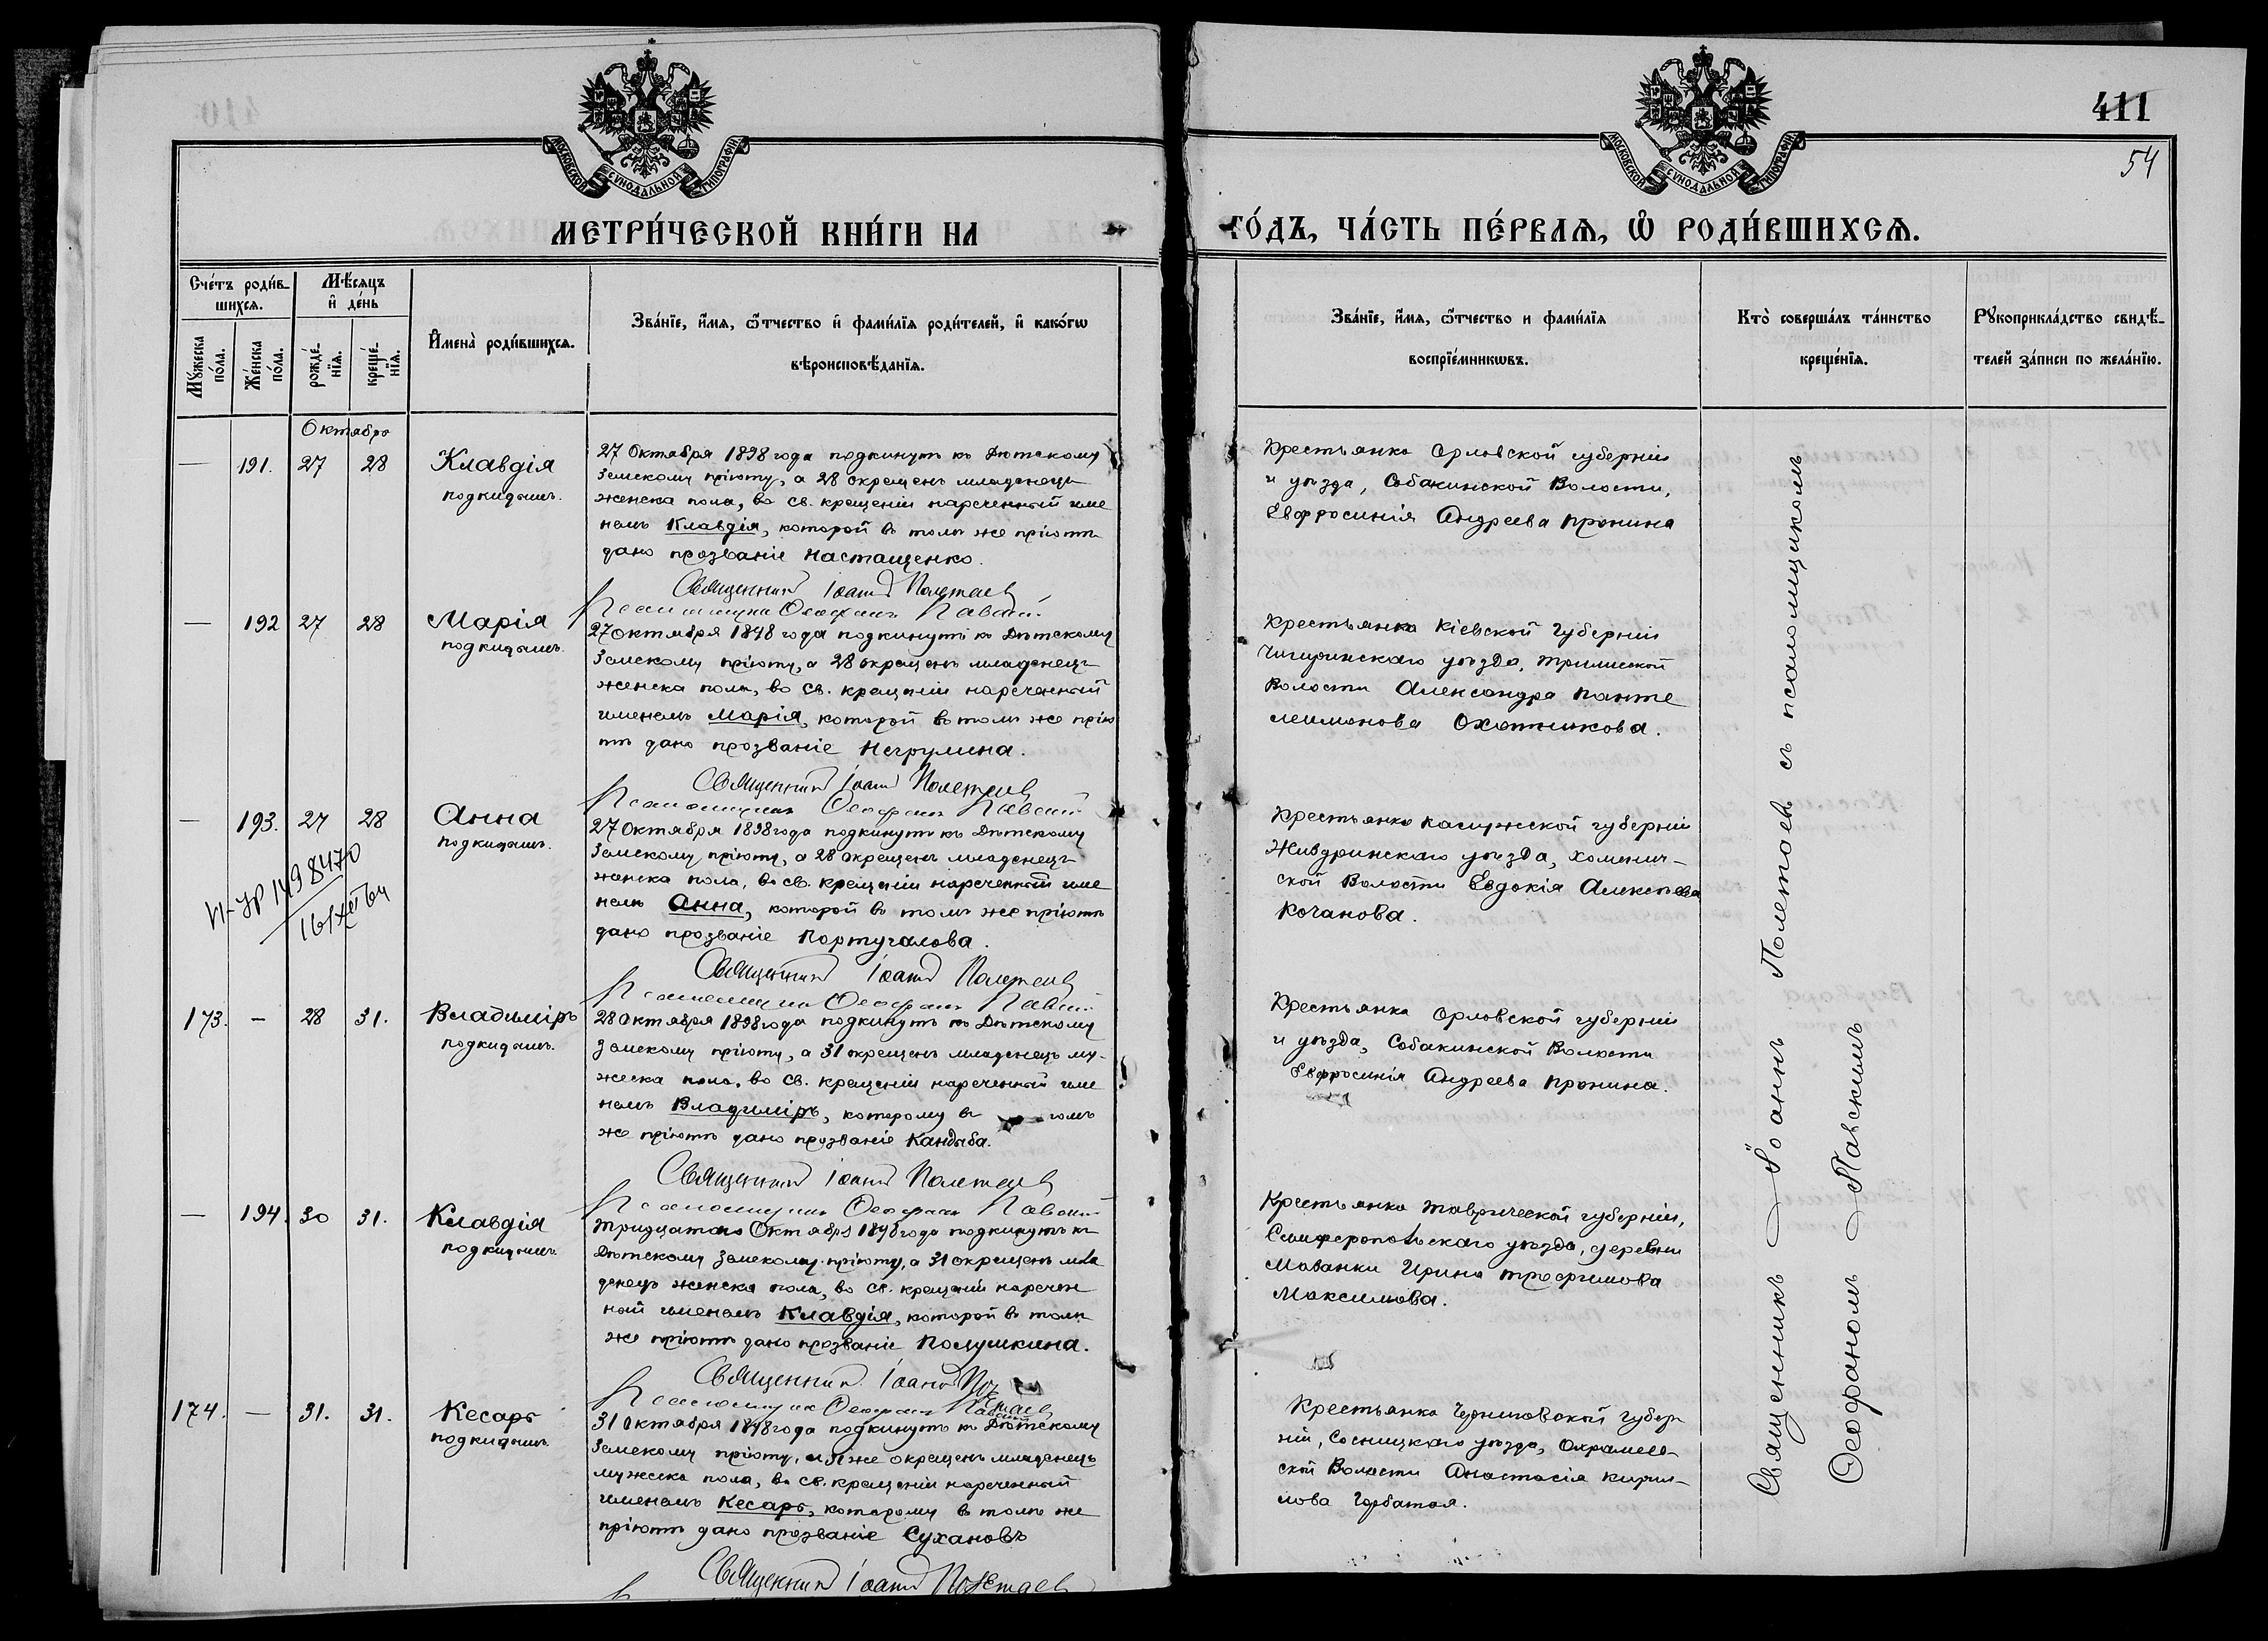 411
54
МОСКОВСКОЙ СѴНОДАЛЬНОЙ ТИПОГРАФІИ
МОСКОВСКОЙ СѴНОДАЛЬНОЙ ТИПОГРАФІИ
МЕТРИ́ЧЕСКОЙ КНИ́ГИ НА
ГО́ДЪ, ЧА́СТЬ ПЕ́РВАѦ, Ѡ҆ РОДИ́ВШИХСѦ.
Сче́тъ роди́в-
шихсѧ.
Мꙋжеска
по́ла.
Же́нска
по́ла.
Мѣ́сѧцъ
и҆ де́нь
рожде́-
нїѧ.
креще́-
нїѧ.
И҆мена̀ роди́вшихсѧ.
Зва́нїе, и҆́мѧ, ѻ҆́тчество и҆ фами́лїѧ роди́телей, и҆ како́гѡ
вѣроисповѣ́данїѧ.
Зва́нїе, и҆́мѧ, ѻ҆́тчество и фами́лїѧ
воспрїе́мникѡвъ.
Кто̀ соверша́лъ та́инство
креще́нїѧ.
Рꙋкоприкла́дство свидѣ́-
телей за́писи по жела́нїю.
Октября
— 191. 27 28 Клавдія
подкидышъ.
27 Октября 1898 года подкинутъ къ Дѣтскому
Земскому пріюту, а 28 окрещенъ младенецъ
женска пола, во св. крещеніи нареченный име
немъ Клавдія, которой въ томъ же пріютѣ
дано прозваніе Настащенко.
Священникъ Іоаннъ Полетаевъ
Псаломщикъ Ѳеофанъ Павскій
Крестьянка Орловской губерніи
и уѣзда, Собакинской Волости,
Евфросинія Андреева Пронина
— 192 27 28 Марія
подкидышъ.
27 октября 1898 года подкинутъ къ Дѣтскому
Земскому пріюту, а 28 окрещенъ младенецъ
женска пола, во св. крещеніи нареченный
именемъ Марія, которой въ томъ же прію
тѣ дано прозваніе Негрулина.
Священникъ Іоаннъ Полетаевъ
Псаломщикъ Ѳеофанъ Павскій
Крестьянка Кіевской Губерніи
Чигиринскаго уѣзда,
Волости Александра Панте
леимонова Охотникова.
— 193. 27 28 Анна
подкидышъ.
27 Октября 1898 года подкинутъ къ Дѣтскому
Земскому пріюту, а 28 окрещенъ младенецъ
женска пола, во св. крещеніи нареченный име
немъ Анна, которой въ томъ же пріютѣ
дано прозваніе Португалова.
Священникъ Іоаннъ Полетаевъ
Псаломщикъ Ѳеофанъ Павскій
Крестьянка Калужской губерніи
Жиздринскаго уѣзда, Хотинич-
ской Волости Евдокія Алексѣева
Кочанова.
173. — 28 31. Владиміръ
подкидышъ.
28 Октября 1898 года подкинутъ къ Дѣтскому
Земскому пріюту, а 31 окрещенъ младенецъ му-
жеска пола, во св. крещеніи нареченный име
немъ Владиміръ, которому въ томъ
же пріютѣ дано прозваніе Кандыба.
Священникъ Іоаннъ Полетаевъ
Псаломщикъ Ѳеофанъ Павскій
Крестьянка Орловской губерніи
и уѣзда, Собакинской Волости
Евфросинія Андреева Пронина.
— 194. 30 31. Клавдія
подкидышъ.
Тридцатаго Октября 1898 года подкинутъ къ
Дѣтскому Земскому пріюту, а 31 окрещенъ мла
денецъ женска пола, во св. крещеніи наречен
ный именемъ Клавдія, которой въ томъ
же пріютѣ дано прозваніе Полушкина.
Священникъ Іоаннъ Полетаевъ
Псаломщикъ Ѳеофанъ Павскій
Крестьянка Таврической губерніи,
Симферопольскаго уѣзда, деревни
Мазанки Ирина Трофимова
Максимова.
174. — 31. 31. Кесарь
подкидышъ.
31 Октября 1898 года подкинутъ къ Дѣтскому
Земскому пріюту, и же окрещенъ младенецъ
мужеска пола, во св. крещеніи нареченный
именемъ Кесарь, которому въ томъ же
пріютѣ дано прозваніе Сухановъ
Священникъ Іоаннъ Полетаевъ
Крестьянка Черниговской Губер
ніи, Сосницкаго уѣзда, Охрамеев-
ской Волости Анастасія Кирил-
лова Горбатая.
Священникъ Іоаннъ Полетаевъ съ псаломщикомъ
Ѳеофаномъ Павскимъ
149 8470